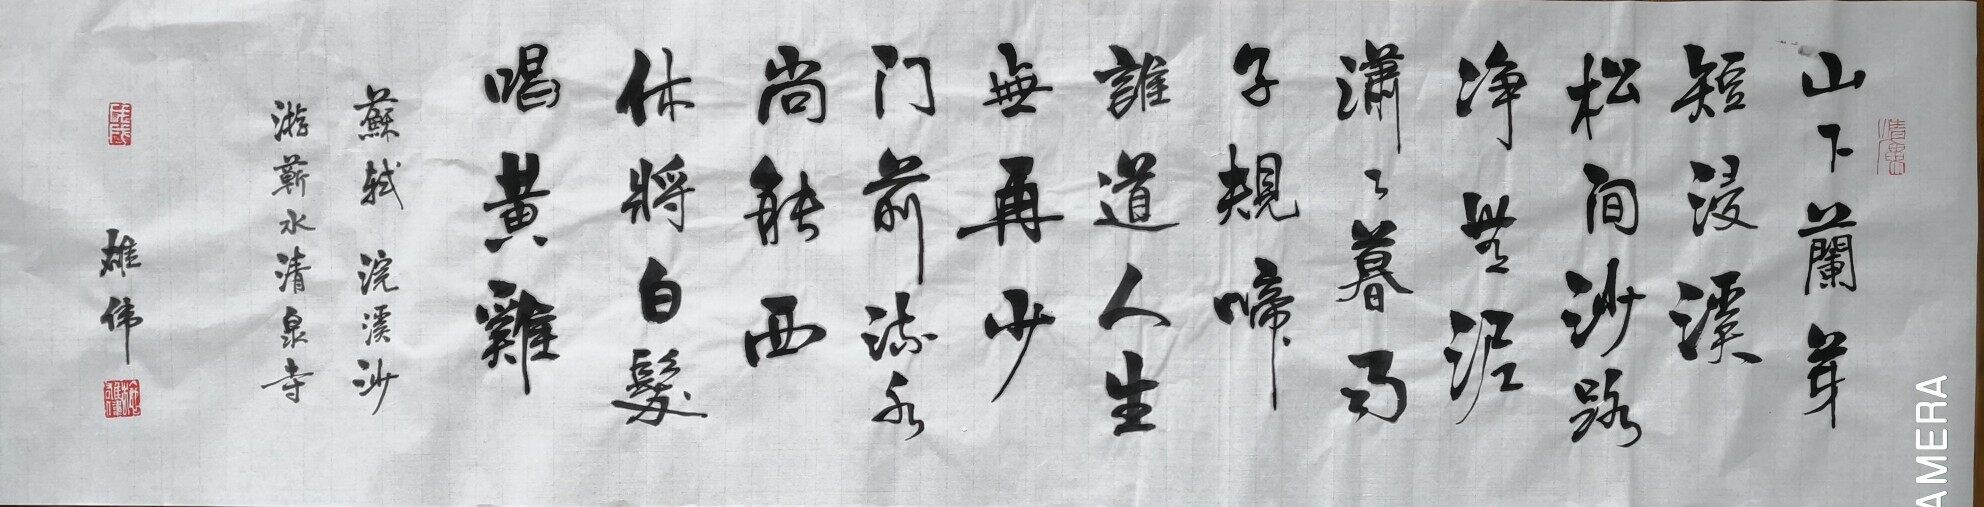 山下蘭芽
短浸溪
松间沙路
净無泥
瀟々暮雨
子規啼
誰道人生
無再少
门前流水
尚能西
休將白髮
唱黃雞
蘇軾 浣溪沙
游蘄水清泉寺
雄偉
AMERA